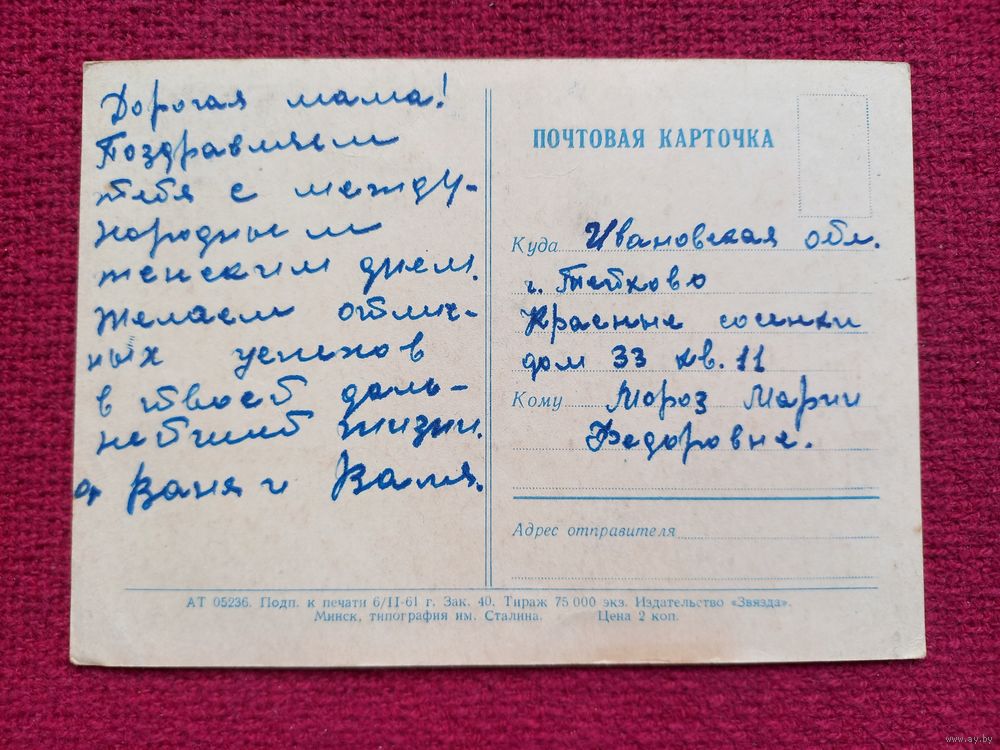 Дорогая мама!
Поздравляем
тебя с между-
народным
женским днем.
Желаем отлич-
ных успехов
в твоей даль-
нейшей жизни.
Ваня и Валя.
ПОЧТОВАЯ КАРТОЧКА
Куда Ивановская обл.
г. Тейково
Красные сосенки
дом 33 кв. 11
Кому Мороз Марии
Федоровне.
Адрес отправителя
АТ 05236. Подп. к печати 6/II-61 г. Зак. 40. Тираж 75 000 экз. Издательство «Звязда».
Минск, типография им. Сталина. Цена 2 коп.
www.ay.by